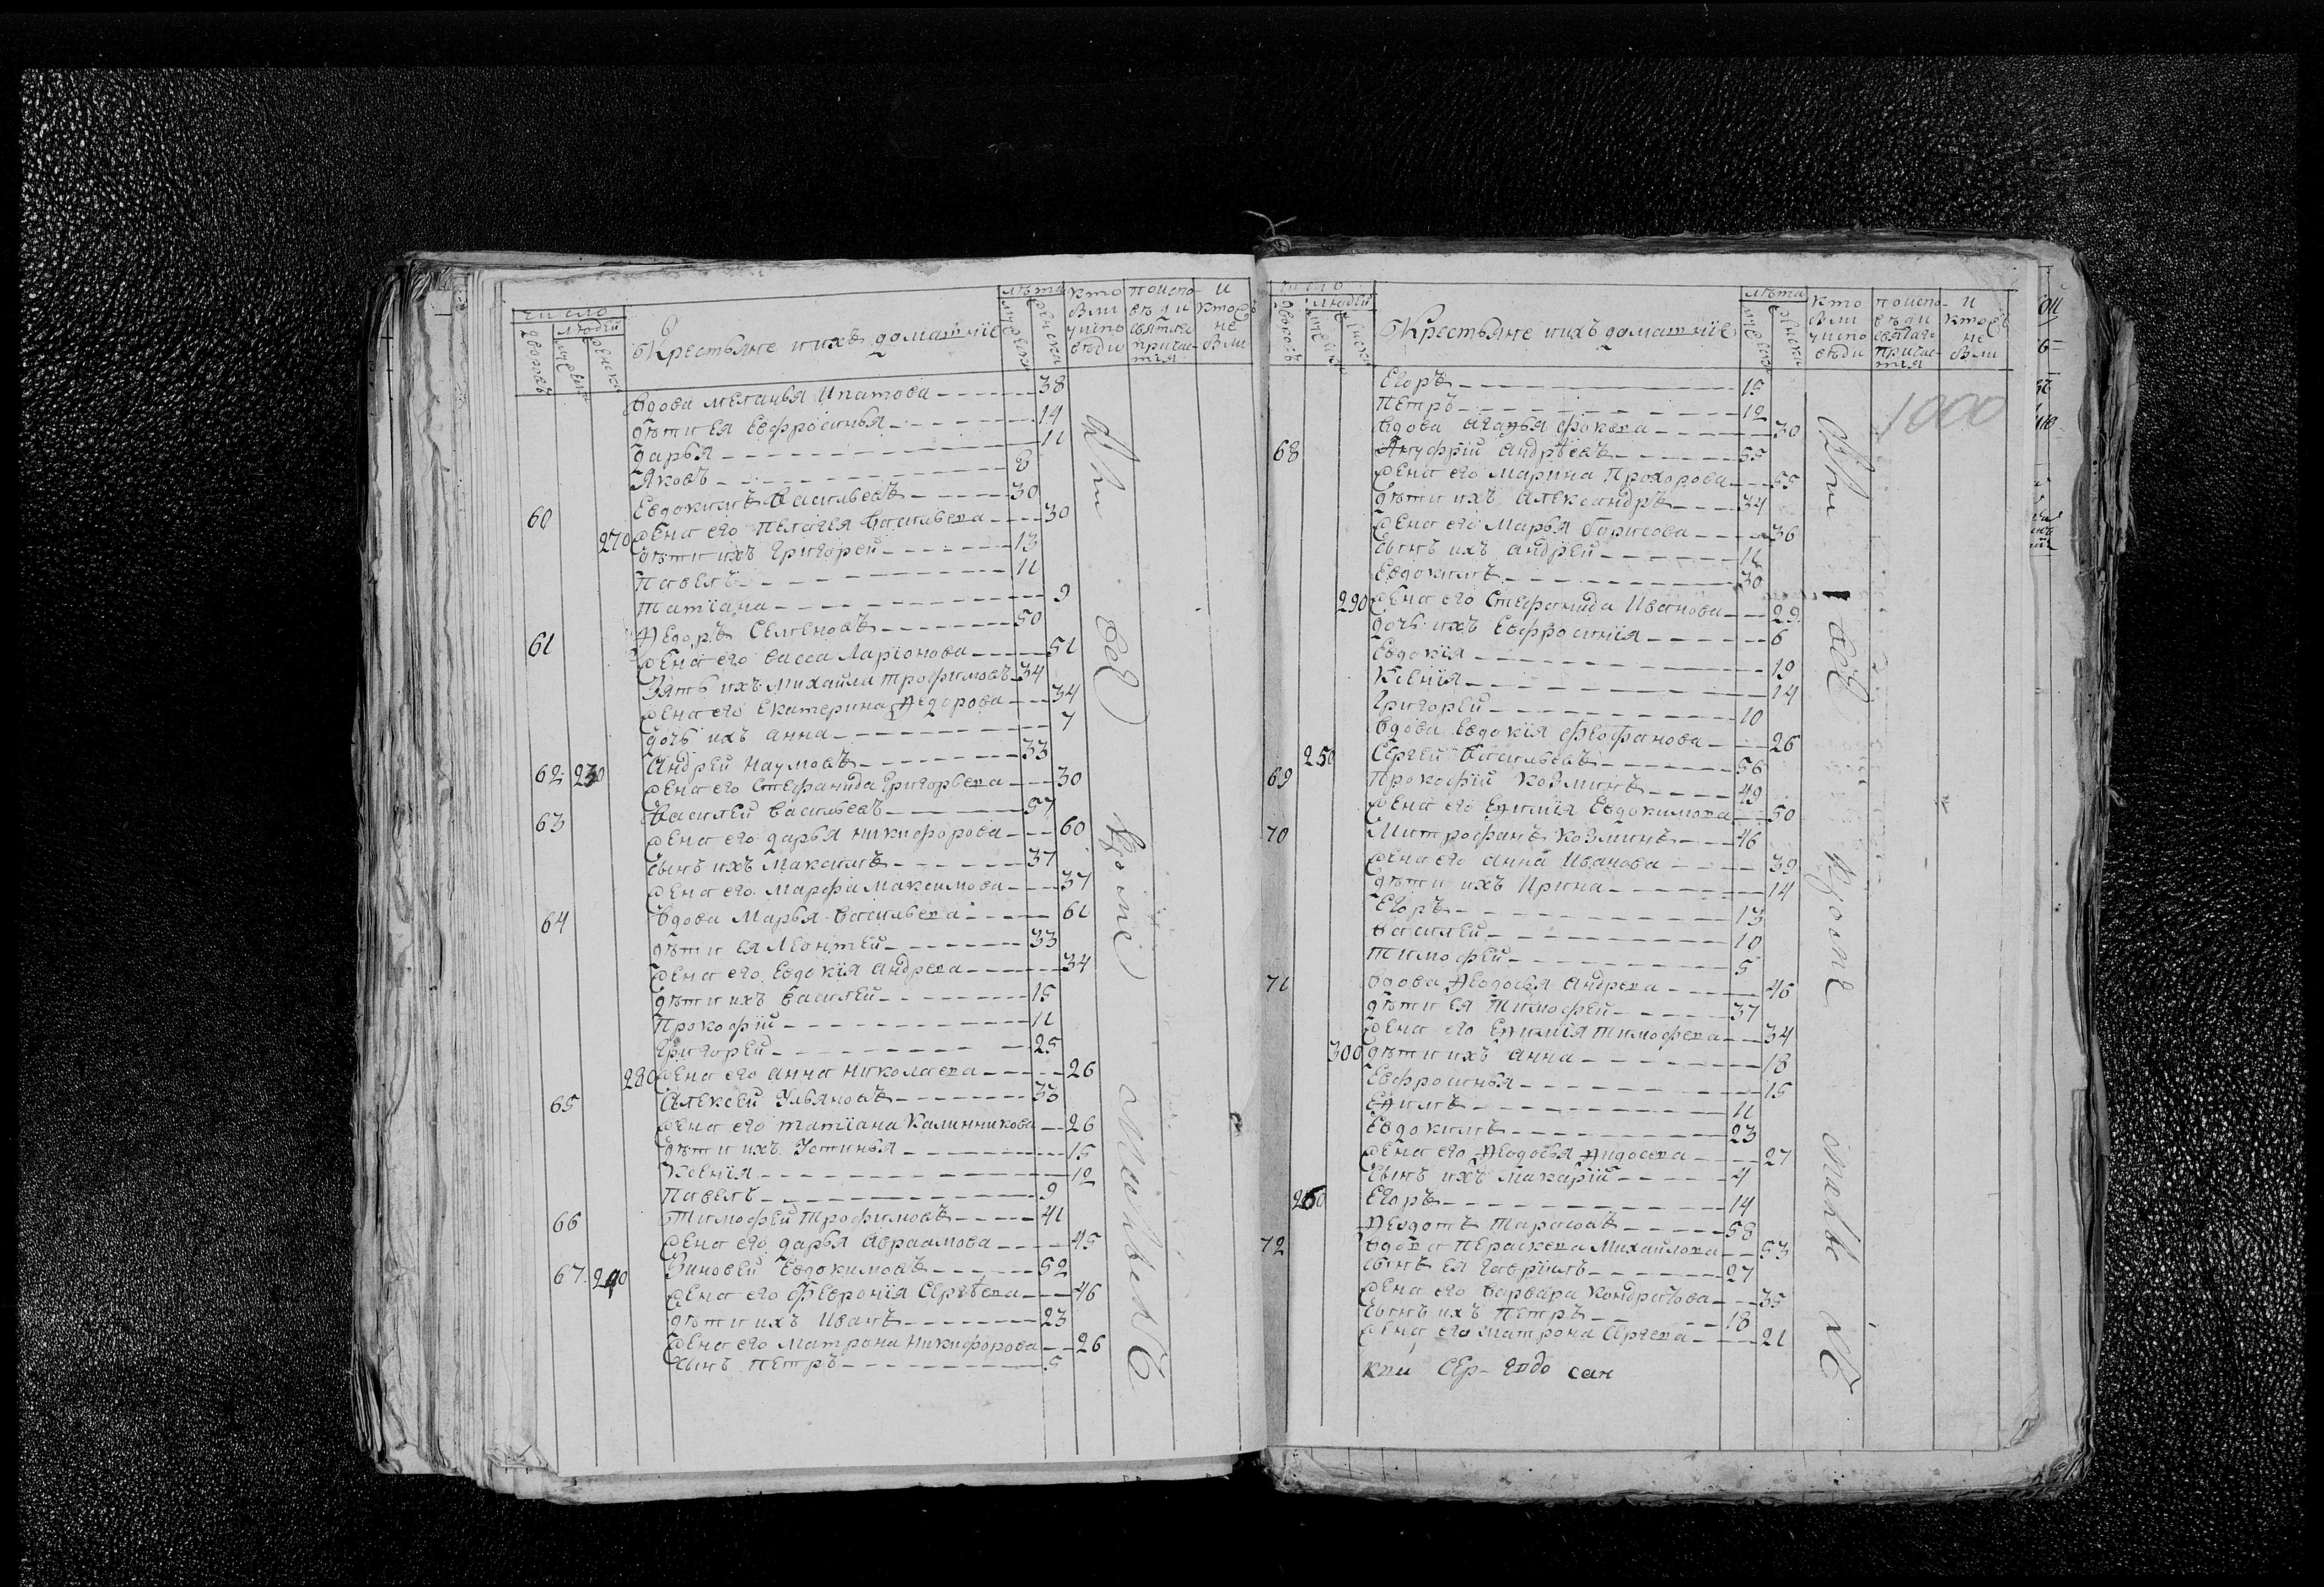 число
людей
дворовъ
мужеска
женска
Крестьяне и ихъ домашнїе
лѣта
мужеска
женска
кто были у исповѣди
по исповѣди святаго причастия
и кто не были
Вдова Меланья Ипатова 38
дѣти ея Евфросинья 14
Дарья 11
Яковъ 8
60 Евдокимъ Васильевъ 30
270 жена его Пелагея Васильева 30
дѣти ихъ Григорей 13
Павелъ 11
Татїана 9
61 Ѳедоръ Семеновъ 50
жена его Васса Ларїонова 51
Зять ихъ Михайла Трофимовъ 34
жена его Екатерина Ѳедорова 34
дочь ихъ Анна 7
62 230 Андрей Наумовъ 33
жена его Стефанида Григорьева 30
63 Василей Васильевъ 57
жена его Дарья Никифорова 60
сынъ ихъ Максимъ 37
жена его Марфа Максимова 37
64 Вдова Марья Васильева 61
дѣти ея Леонтей 33
жена его Евдокїя Андреева 34
дѣти ихъ Василей 15
Прокофїй 11
Григорей 25
280 жена его Анна Николаева 26
65 Алексей Ульяновъ 33
жена его Татїана Калинникова 26
дѣти ихъ Устинья 15
Ксенїя 12
Павелъ 9
66 Тимофей Трофимовъ 41
жена его Дарья Авраамова 45
67 240 Зиновей Евдокимовъ 52
жена его Феврония Сергѣева 46
дѣти ихъ Иванъ 23
жена его Матрона Никифорова 26
сынъ Петръ 5
Были всѣ
число
людей
дворовъ
мужеска
женска
Крестьяне и ихъ домашнїе
лѣта
мужеска
женска
кто были у исповѣди
по исповѣди святаго причастия
и кто не были
1000
Егоръ 15
Петръ 12
Вдова Агафья Фокева 30
68 Ануфрїй Андрѣевъ 55
жена его Марина Прохорова 55
дѣти ихъ Александръ 34
жена его Марья Борисова 36
сынъ ихъ Андрей 11
Евдокимъ 30
290 жена его Стефанида Иванова 29
дочь ихъ Евфросинїя 6
Евдокїя 19
Ксенїя 14
Григорей 10
Вдова Евдокїя Феофанова 26
250 Сергей Васильевъ 56
69 Прокофїй Козминъ 49
жена его Еѳимїя Евдокимова 50
70 Митрофанъ Козминъ 46
жена его Анна Иванова 39
дѣти ихъ Ирина 14
Егоръ 13
Василей 10
Тимофей 5
71 Вдова Ѳеодосья Андреева 46
дѣти ея Тимофей 37
жена его Еѳимїя Тимофеева 34
300 дѣти ихъ Анна 18
Евфросинья 15
Еѳимъ 11
Евдокимъ 23
жена его Ѳеодосья 27
сынъ ихъ Макарїй 4
260 Егоръ 14
Ѳеодотъ Тарасовъ 58
72 Вдова Перасковья Михайлова 53
сынъ ея Гаврїилъ 27
жена его Варвара Кондратова 35
сынъ ихъ Петръ 18
жена его Матрона Сергеева 21
Были всѣ